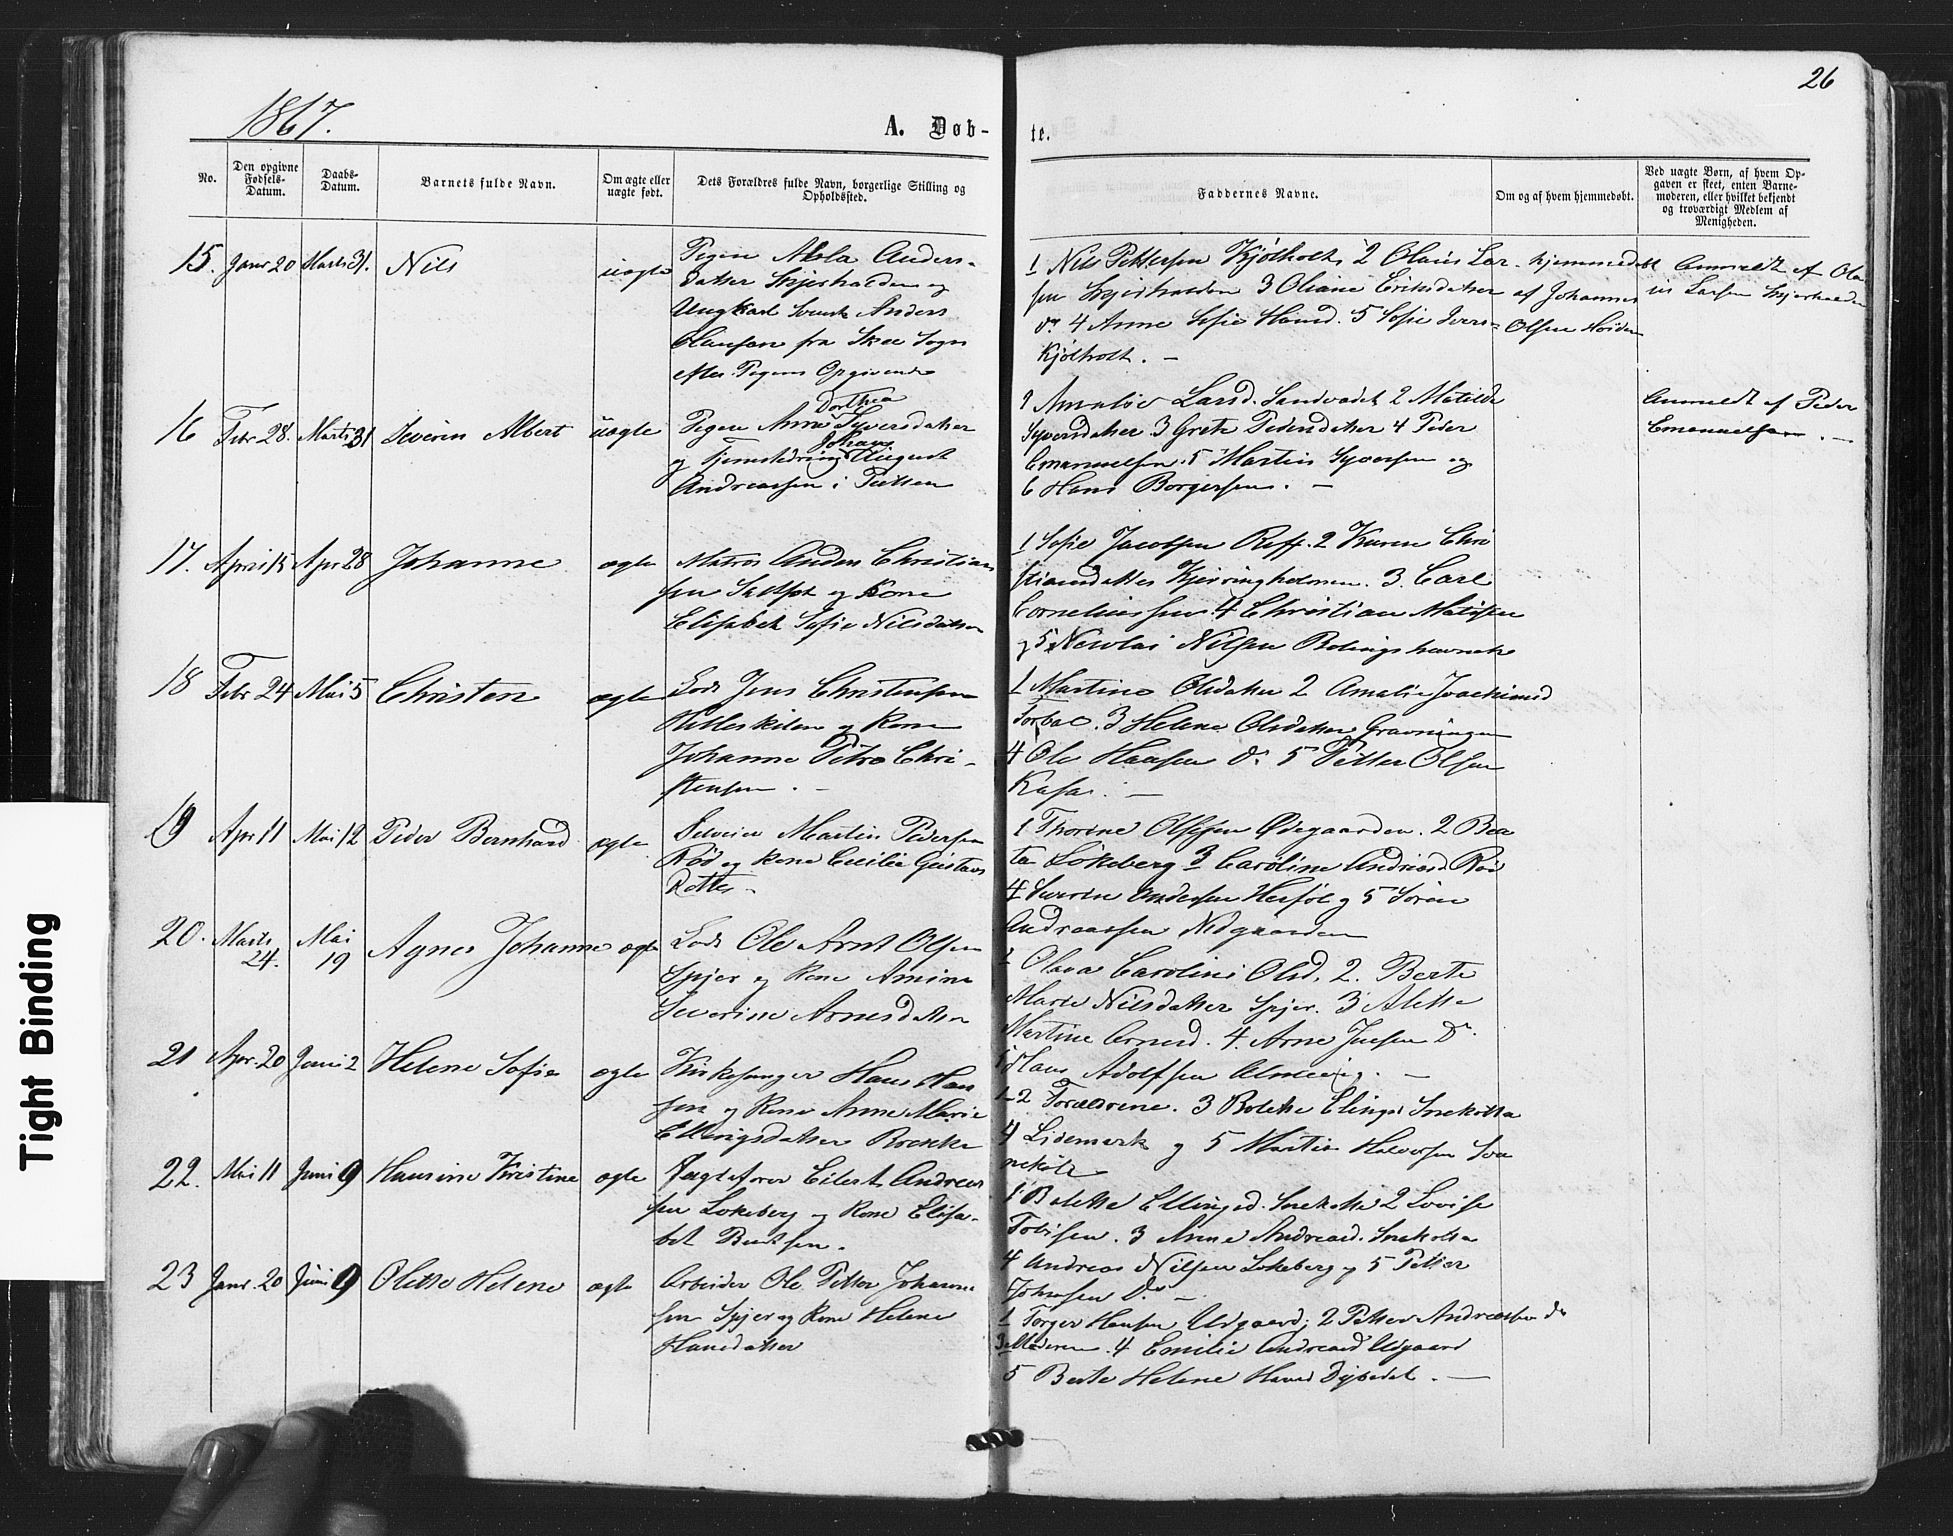 1867.
A. Døb-
te.
26
No.
Den opgivne Fødsels-Datum.
Daabs-Datum.
Barnets fulde Navn.
Om ægte eller uægte født.
Dets Forældres fulde Navn, borgerlige Stilling og Opholdssted.
Faddernes Navne.
Om og af hvem hjemmedøbt.
Ved uægte Børn, af hvem Opgaven er skeet, enten Barnemoderen, eller hvilket bekjendt og troværdigt Medlem af Menigheden.
15. Janr 20 Marts 31. Nils uægte
Pigen Anders-
datter og
Ungkarl Svensk Anders
fra Skee Sogn
efter Pigens Opgivende
1 Nils Pettersen Kjølholt 2 Olaus Lar-
sen 3 Oliane Eriksdatter
do 4 Anne Sofie Hansd. 5 Sofie Ivers-
Kjølholt. -
hjemmedøbt
af Johannes
Olsen
Anmeldt af Ola
us Larsen
16 Febr 28. Marts 31 Severin Albert uægte
Dorthea
Pigen Anne Syversdatter
Johans
og August
Andreassen i
1 Larsd. Sandvadet 2 Matilde
Syversdatter 3 Grete Pedersdatter 4 Peder
Emanuelsen. 5 Martin Syversen og
6 Hans Borgersen. -
Anmeldt af Peder
Emanuelsen. -
17. April 15 Apr 28 Johanne ægte
Matros Anders Christian
sen og Kone
Elisabet Sofie Nilsdatter
1 Sofie Jacobsen 2 Karen Chri
stiansdatter Kjerringholmen. 3. Carl
Corneliussen. 4 Christian
og 5 Nicolai Nilsen
18 Febr 24 Mai 5 Christen ægte
Lods Jens Christensen
og Kone
Johanne Petra Chri-
stensen. -
1 Martine Olsdatter 2 Amalie Joachimsd
3 Helene Olsdatter Gravningen
4 Ole Hansen do 5 Petter Olsen
-
19 Apr 11 Mai 12 Peder Bernhard ægte
Martin Pedersen
Rød og Kone Cecilie Gustavs
Datter.
1 Thorine Olsen Ødegaarden. 2 Bea
ta Løkeberg 3 Caroline Andreasd. Rød
4 Severin Andersen Herføl og 5 Søren
Andreassen Nedgaarden
20. Marts 24. Mai 19 Agnes Johanne ægte
Lods Ole Arnt Olsen
Spjær og Kone Amine
Severine Arnesdatter
1 Olava Caroline Olsd. 2. Berte
Marie Nilsdatter Spjær. 3 Alette
Martine Arnesd. 4. Arne Jensen Do.
5 Hans Adolfsen -
21 Apr. 20 Juni 2 Helene Sofie ægte
Kirkesanger Hans Han
sen og Kone Anne Marie
Ellingsdatter Brekke
1-2 Forældrene. 3 Bolette Ellingsd
4 Lidemark og 5 Martin Halvorsen
22. Mai 11 Juni 9 Hansine Kristine ægte
Eilert Andreas
sen Løkeberg og Kone Elisa-
bet Berntsen.
1 Bolette Ellingsd. 2 Lovise
Tobisen. 3 Anne Andreasd.
4 Andreas Nilsen Løkeberg og 5 Petter
Johnsen Do. -
23 Janr. 20 Juni 9 Olette Helene ægte
Arbeider Ole Petter Johanne
sen Spjær og Kone Helene
Hansdatter
1 Torger Hansen Udgaard; 2 Petter Andreassen do
3 Moderen. 4 Emilie Andreasd Udgaard
5 Berte Helene Hansd Dybedal. -
Tight Binding